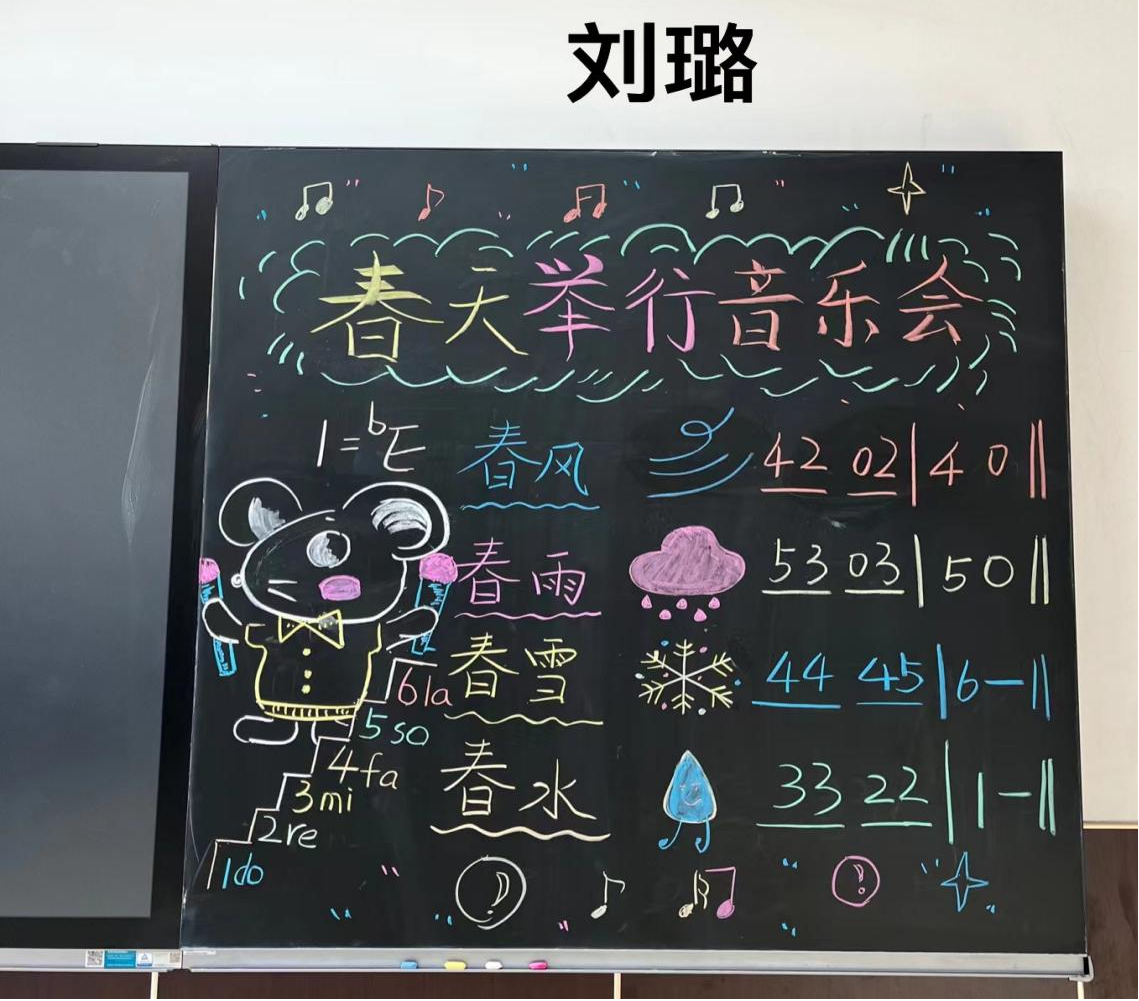 刘璐
春天举行音乐会
1=bE
春风 42 02|4 0‖
春雨 53 03|50‖
春雪 44 45|6—‖
春水 33 22|1—‖
6la
5so
4fa
3mi
2re
1do